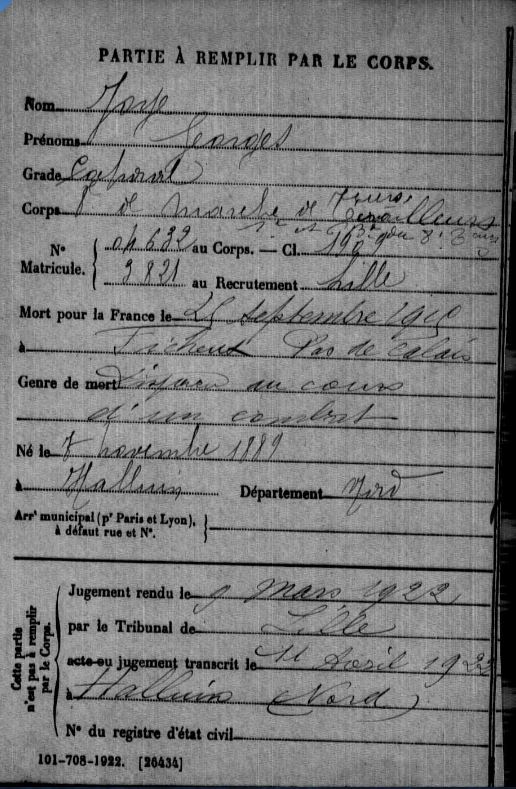 PARTIE À REMPLIR PAR LE CORPS.
Nom Joye
Prénoms Georges
Grade Caporal
Corps de Marche de Tirailleurs
N° Matricule. 04632 au Corps. — Cl. 1909
3821 au Recrutement Lille
Mort pour la France le 25 septembre 1915
à Ficheux Pas de Calais
Genre de mort Disparu au cours
d'un combat
Né le 7 novembre 1889
à Halluin Département Nord
Arrt municipal (pr Paris et Lyon), à défaut rue et N°.
Cette partie n'est pas à remplir par le Corps.
Jugement rendu le 9 Mars 1922
par le Tribunal de Lille
acte ou jugement transcrit le 11 Avril 1922
à Halluin (Nord)
N° du registre d'état civil
101-708-1922. [26434]